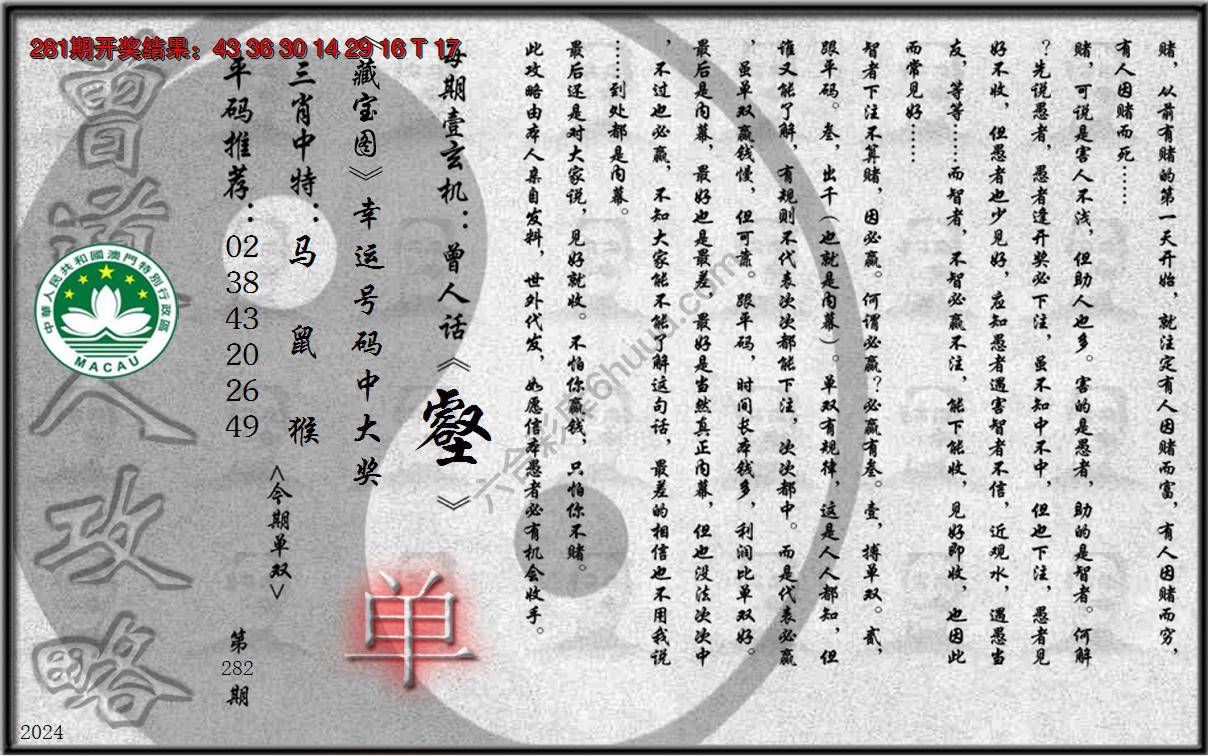 281期开奖结果：43 36 30 14 29 16 T 17
赌，从前有赌的第一天开始，就注定有人因赌而富，有人因赌而穷，
有人因赌而死……
赌，可说是害人不浅，但助人也多。害的是愚者，助的是智者。何解
？先说愚者，愚者逢开奖必下注，虽不知中不中，但也下注，愚者见
好不收，但愚者也少见好，应知愚者遇害智者不信，近观水，遇愚当
友，等等……而智者，不智必赢不注，能下能收，见好即收，也因此
而常见好……
智者下注不算赌，因必赢。何谓必赢？必赢有叁。壹，搏单双。贰，
跟平码。叁，出千（也就是内幕）。单双有规律，这是人人都知，但
谁又能了解，有规则不代表次次都能下注，次次都中。而是代表必赢
，虽单双赢钱慢，但可靠。跟平码，时间长本钱多，利润比单双好。
最后是内幕，最好也是最差，最好是当然真正内幕，但也没法次次中
，不过也必赢，不知大家能不能了解这句话，最差的相信也不用我说
……到处都是内幕。
最后还是对大家说，见好就收。不怕你赢钱，只怕你不赌。
此攻略由本人亲自发料，世外代发，如愿信本愚者必有机会收手。
每期壹玄机：曾人话《壑》
《藏宝图》幸运号码中大奖
三肖中特：马 鼠 猴
<今期单双>
单
平码推荐：
02
38
43
20
26
49
第
282
期
曾道人攻略
中華人民共和國澳門特別行政區
MACAU
六合彩库6huuu.com
2024